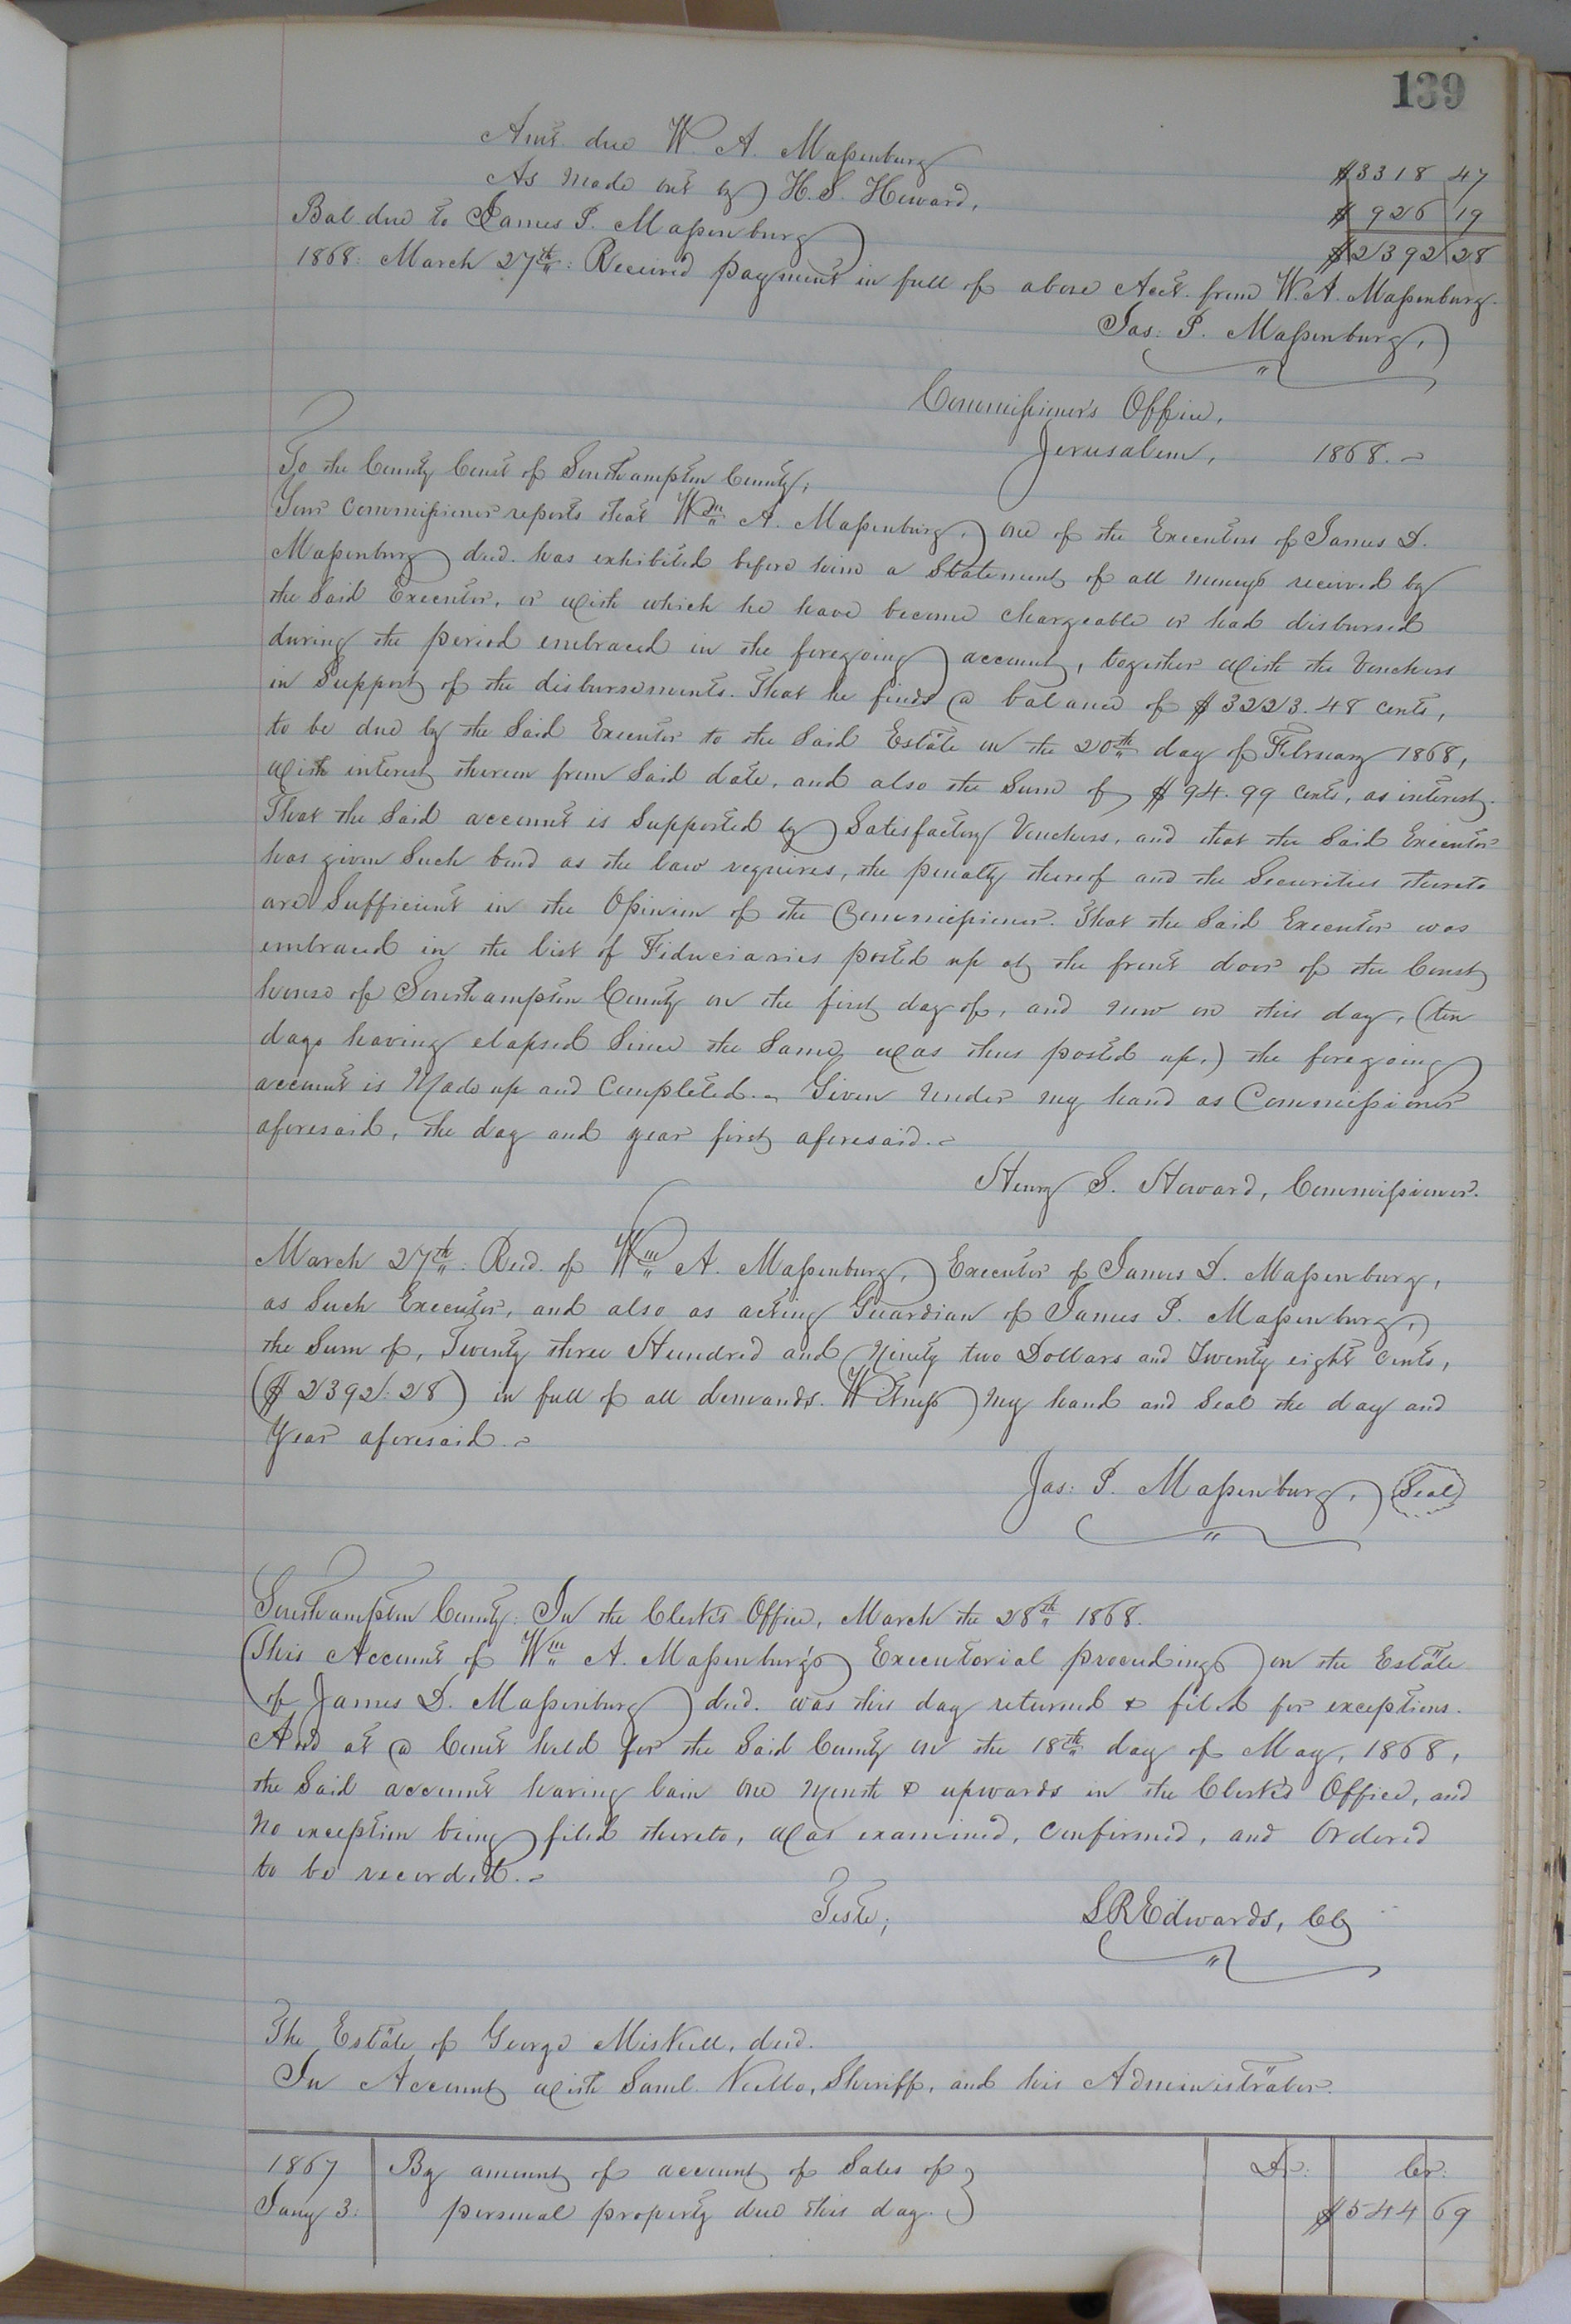 139
Amt. due W. A. Massenburg $3318 47
As made out by H. S. Howard, $ 926 19
Bal. due to James P. Massenburg $2392 28
1868: March 27th: Received payment in full of above Acct. from W. A. Massenburg.
Jas: P. Massenburg,
Commissioner's Office,
Jerusalem, 1868.
To the County Court of Southampton County;
Your commissioner reports that Wm A. Massenburg, one of the Executors of James D.
Massenburg decd. has exhibited before him a Statement of all moneys received by
the Said Executor, or with which he have become chargeable or had disbursed
during the period embraced in the foregoing account, together with the Vouchers
in Support of the disbursements. That he finds a balance of $3223.48 cents,
to be due by the Said Executor to the Said Estate on the 20th day of February 1868,
with interest thereon from Said date, and also the Sum of $94.99 cents, as interest.
That the Said account is Supported by Satisfactory Vouchers, and that the Said Executor
has given Such bond as the law requires, the penalty thereof and the Securities thereto
are Sufficient in the Opinion of the Commissioner. That the Said Executor was
embraced in the list of Fiduciaries posted up at the front door of the Court
house of Southampton County on the first day of, and now on this day, (ten
days having elapsed Since the Same was thus posted up,) the foregoing
account is Made up and Completed. Given under my hand as Commissioner
aforesaid, the day and year first aforesaid.
Henry S. Howard, Commissioner.
March 27th: Recd. of Wm A. Massenburg, Executor of James D. Massenburg,
as Such Executor, and also as acting Guardian of James P. Massenburg,
the Sum of, Twenty three Hundred and Ninety two Dollars and Twenty eight Cents,
($2392:28) in full of all demands. Witness my hand and Seal the day and
Year aforesaid.
Jas: P. Massenburg, Seal
Southampton County: In the Clerk's Office, March the 28th 1868.
This Account of Wm A. Massenburg's Executorial proceedings on the Estate
of James D. Massenburg decd. was this day returned & filed for exceptions.
And at a Court held for the Said County on the 18th day of May, 1868,
the Said account having lain one Month & upwards in the Clerk's Office, and
No exception being filed thereto, was examined, Confirmed, and Ordered
to be recorded.
Teste; L R Edwards, Clk
The Estate of George Miskell, decd.
In Account with Saml. Kello, Sheriff, and his Administrator.
1867 By amount of account of Sales of Dr: Cr:
Jany 3: personal property due this day. $544 69